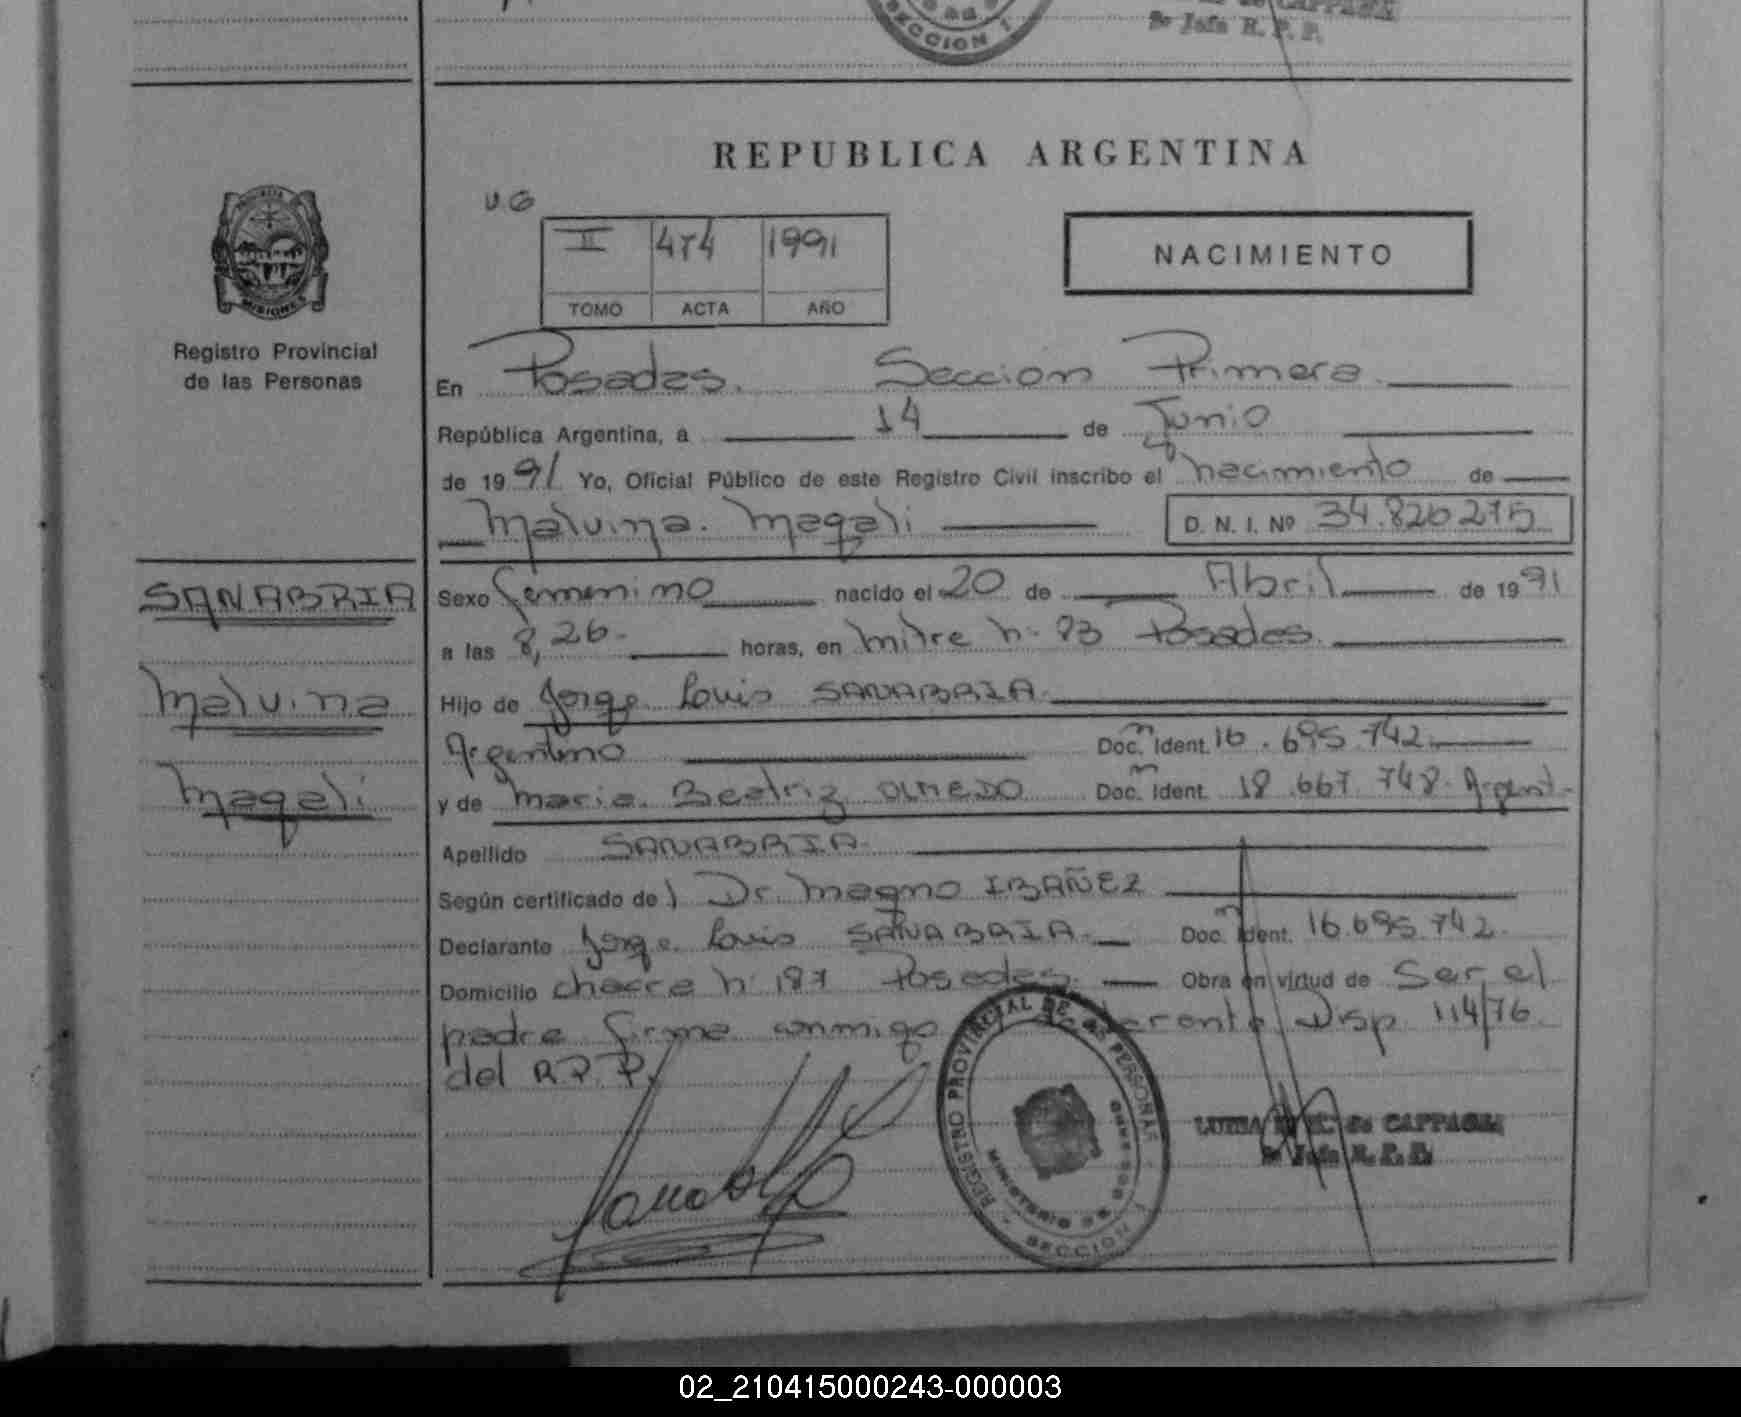 SECCION I
de CAPPAGLI
2o Jefe R. P. P.
REPUBLICA ARGENTINA
UG
II 474 1991
TOMO ACTA AÑO
NACIMIENTO
MISIONES
Registro Provincial
de las Personas
En Posadas. Seccion Primera
República Argentina, a 14 de Junio
de 1991 Yo, Oficial Público de este Registro Civil inscribo el nacimiento de
Malvina. Magali D. N. I. Nº 34.826275
SANABRIA
Malvina
Magali
Sexo femenino nacido el 20 de Abril de 1991
a las 8,26. horas, en Mitre n. 83 Posadas.
Hijo de Jorge Louis SANABRIA
Argentino Doc. Ident. 16.695.742
y de Maria Beatriz OLMEDO Doc. Ident. 18.667.748. Argent.
Apellido SANABRIA
Según certificado de Dr. Magno IBAÑEZ
Declarante Jorge Louis SANABRIA. Doc. Ident. 16.695.742.
Domicilio chacra n. 187 Posadas. Obra en virtud de Ser el
padre firma conmigo Disp. 114/76
del R.P.P.
REGISTRO PROVINCIAL DE LAS PERSONAS
MINISTERIO DE
SECCION I
LUISA de CAPPAGLI
2o Jefe R. P. P.
02_210415000243-000003